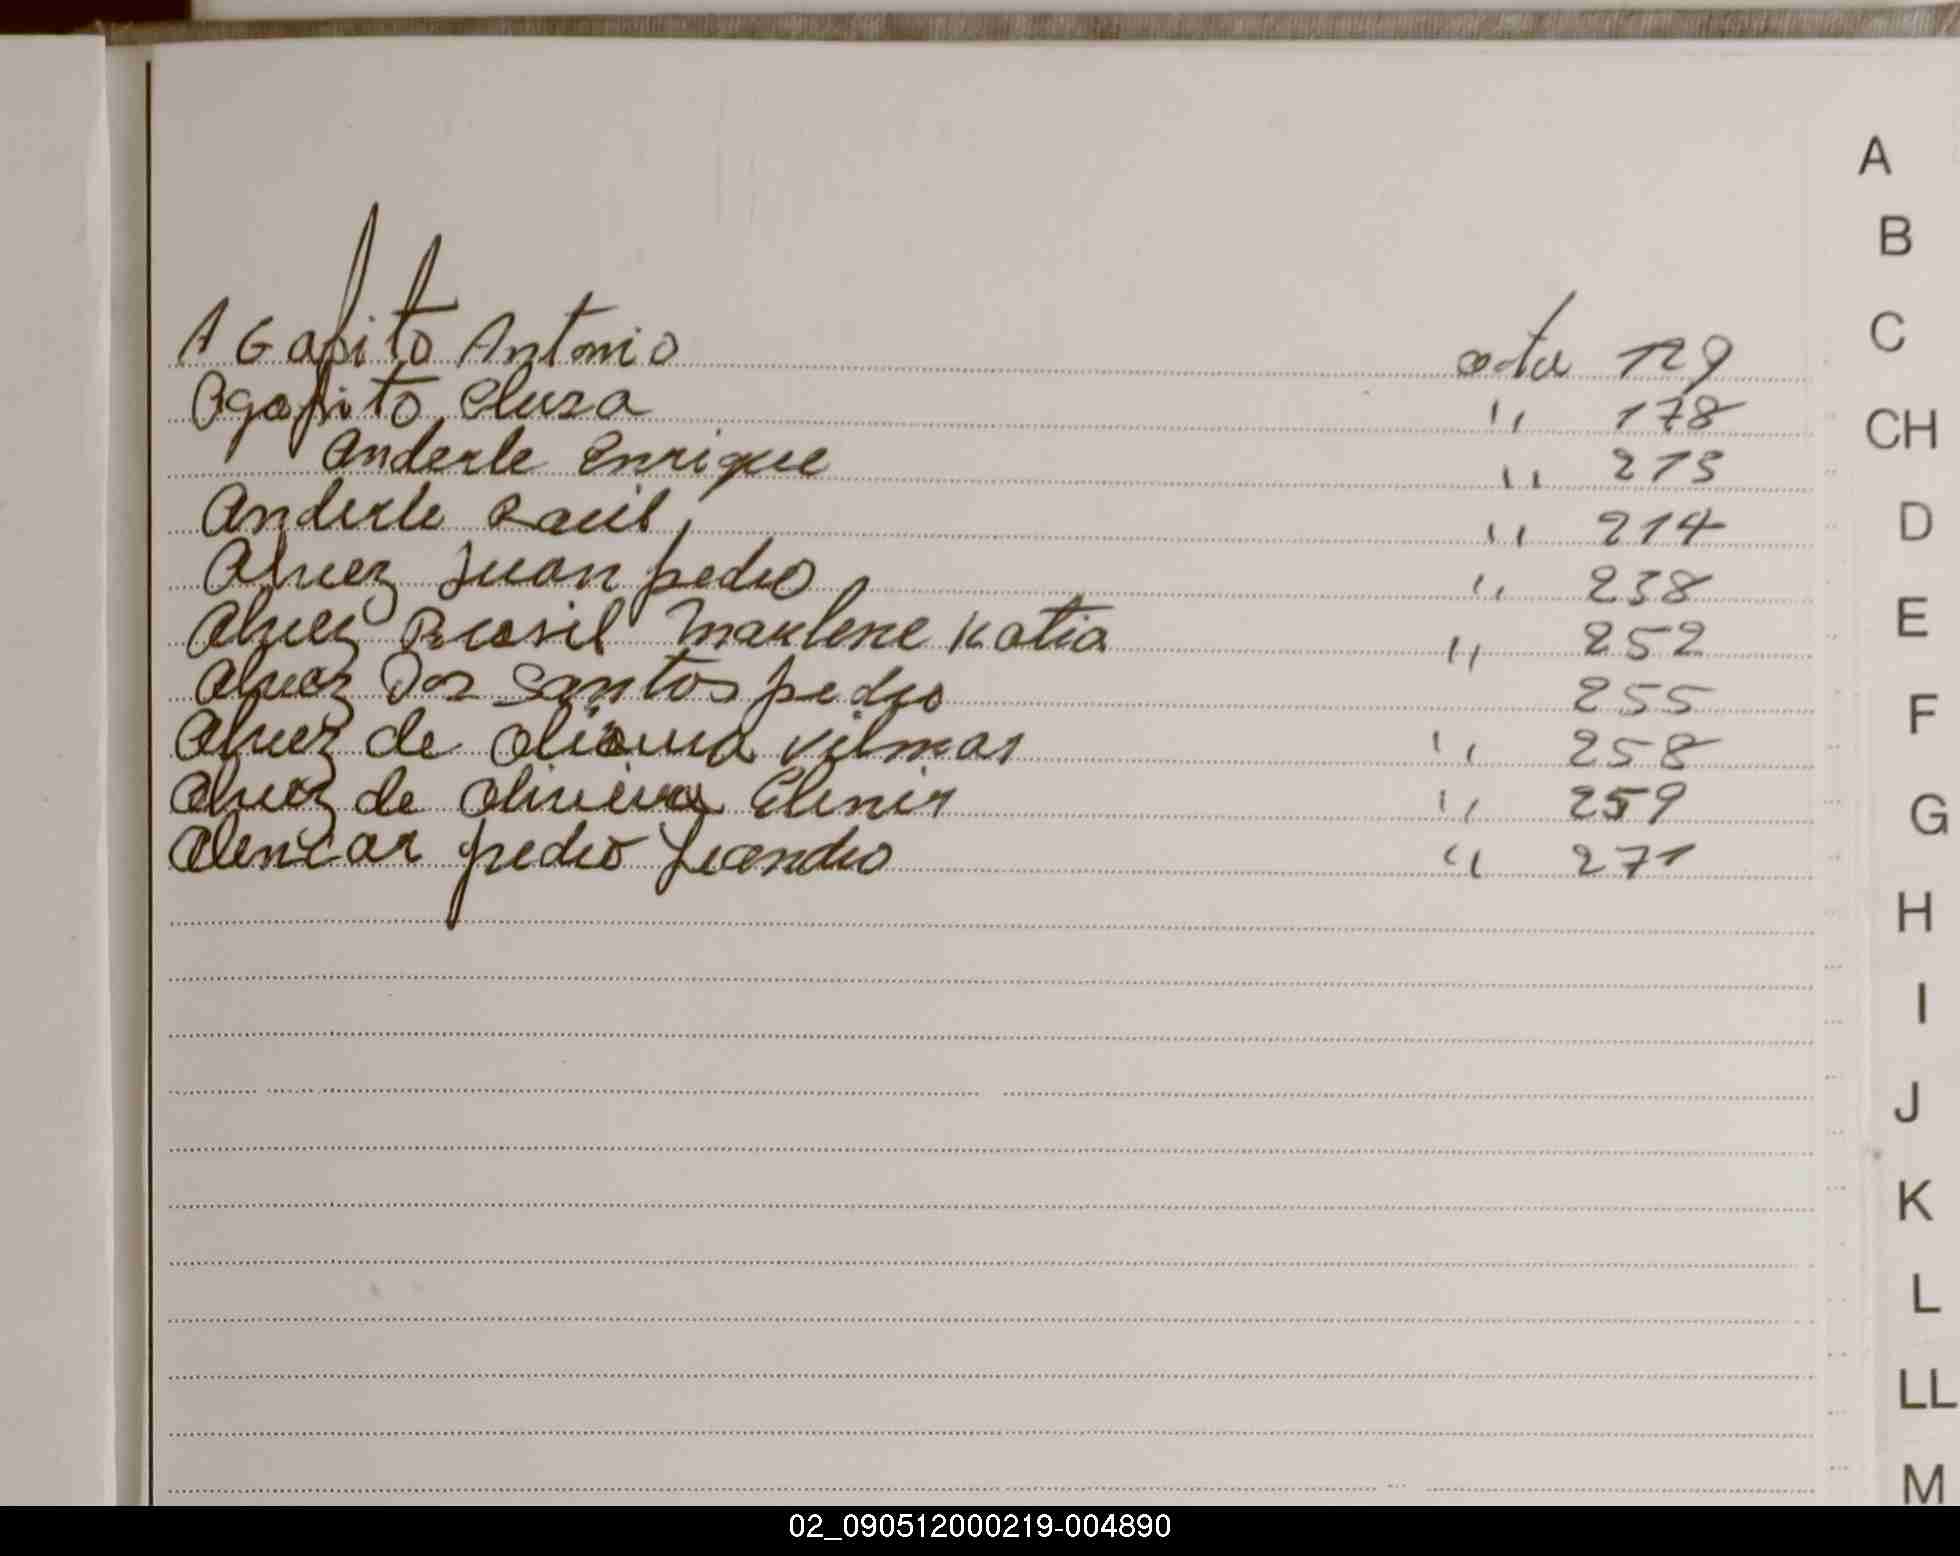 AGapito Antonio acta 129
Agapito Cluza " 178
Anderle Enrique " 213
Anderle Raúl " 214
Alvez Juan pedro " 238
Alvez Brasil Marlene Katia " 252
Alvez Dos Santos pedro 255
Alvez de Oliveira Vilmar " 258
Alvez de Oliveira Elenir " 259
Alencar pedro Leandro " 271
A
B
C
CH
D
E
F
G
H
I
J
K
L
LL
M
02_090512000219-004890